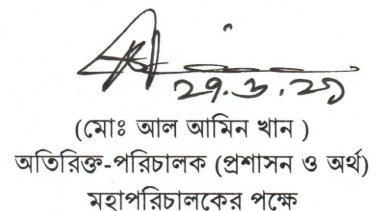 ২৯.৩.২১
(মোঃ আল আমিন খান )
অতিরিক্ত-পরিচালক (প্রশাসন ও অর্থ)
মহাপরিচালকের পক্ষে